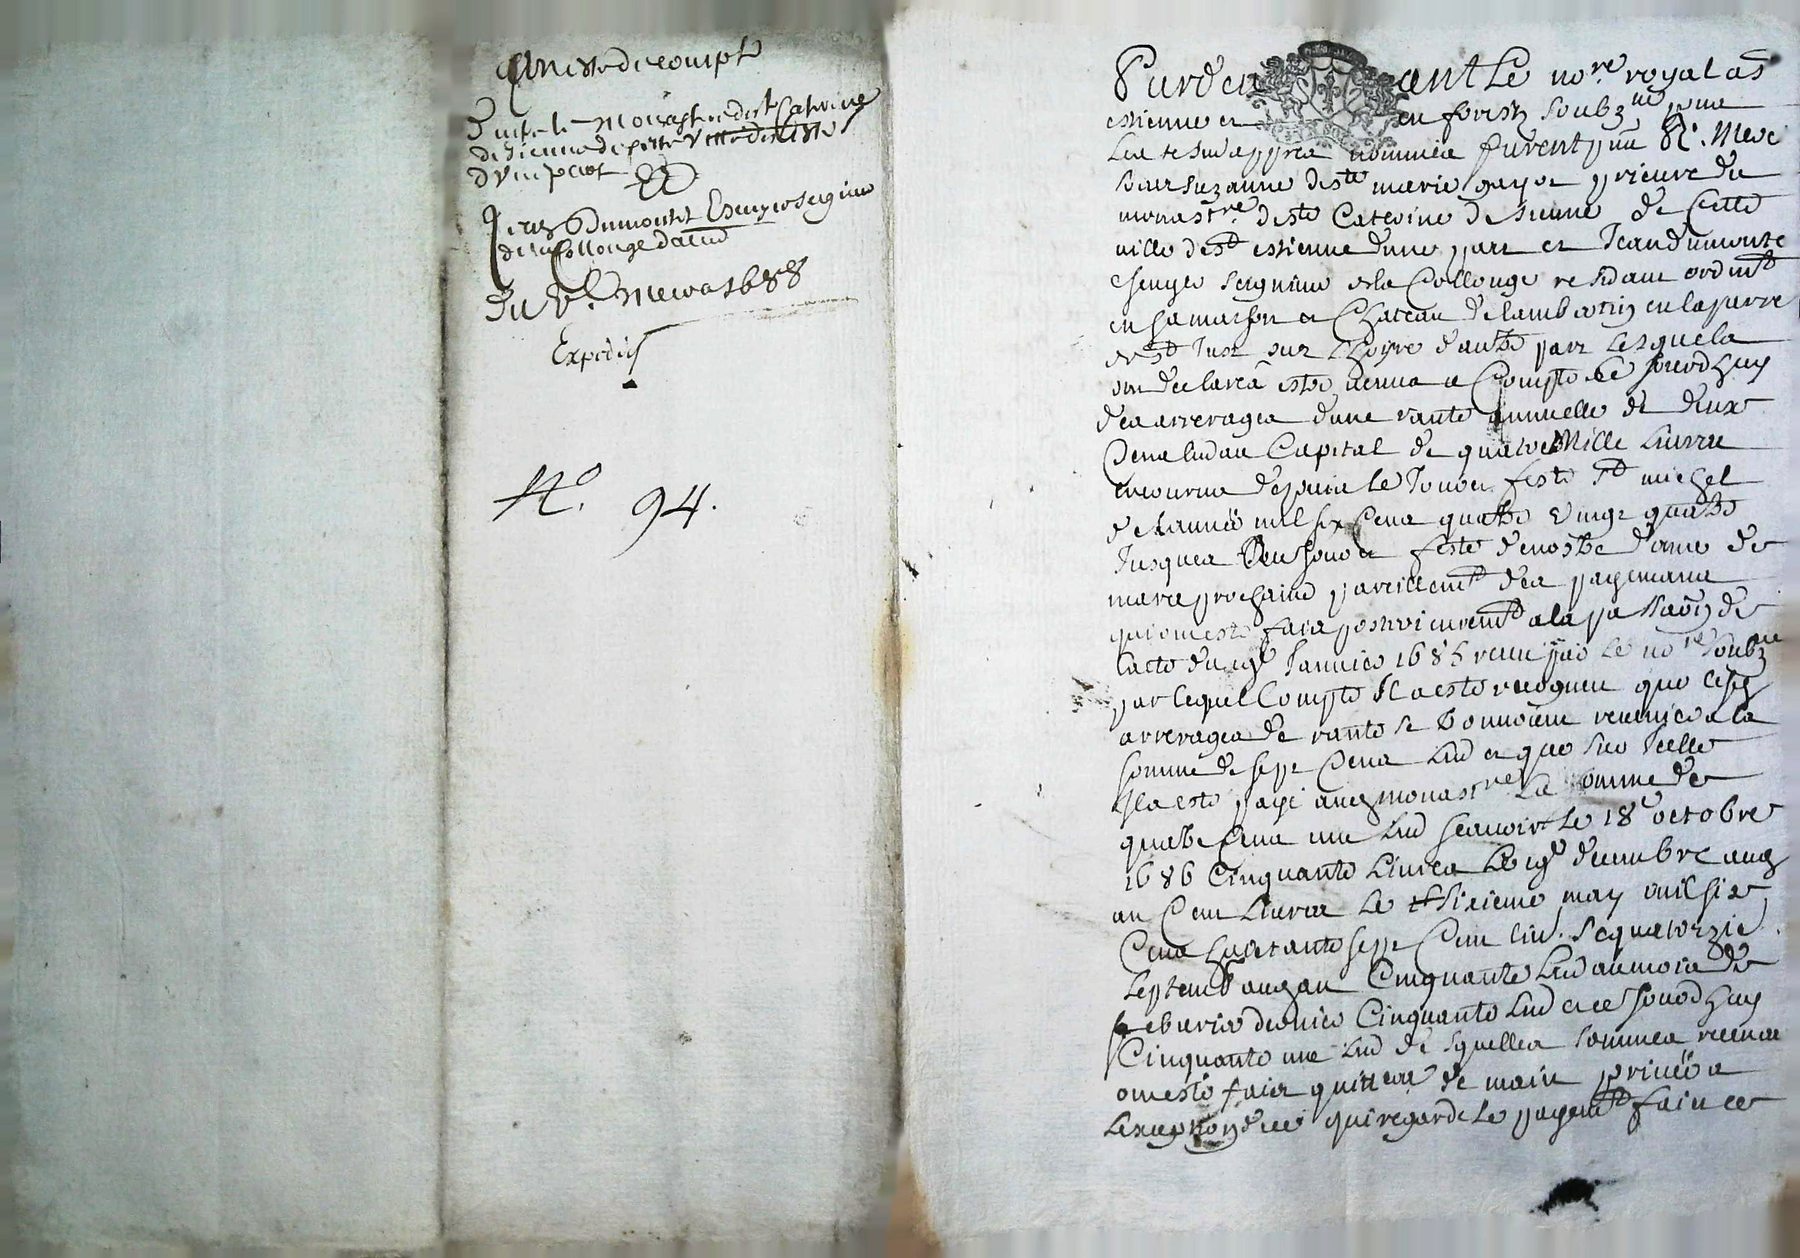 Arresté de compte
Entre le Monastere de Ste Caterine
de Sienne de cette ville de St Estienne
d'une part
Et
Jean Dumontet Escuyer Seigneur
de la Collonge d'autre
Du 8e. Mars 1688
Expedié
N°. 94.
Pardevant Le nore royal a St
estienne en forestz Soubzne
Les tesm appres nommés furent pnte Re. Mere
soeur Suzanne de ste marie prieure du
monastre de ste Caterine de Sienne de Cette
ville de st estienne d'une part et Jean dumontet
escuyer Seigneur de la Collonge residant ordint
en sa maison et Chateau de en la parre
de st Just sur d'autre part Lesquels
ont declarés estre venus a Compte ce jourdhuy
des arrerages d'une rante annuelle de deux
Cens livd au Capital de quatre Mille livres
encourus depuis le Jour et feste St michel
de l'année mil six Cens quatre vingt quatre
Jusques au jour et feste de nostre dame de
mars prochaind pareillemt des payemans
qui ont esté fais posterieuremt a la passaōn de
l'acte du 19e Janvier 1685 receu par le nore soubzne
par lequel Compte Il a esté recogneu que lesd
arrerages de rante se treuvoient revenir a la
somme de sept Cens livd et que sur Icelle
Il a esté payé aud monastre La somme de
quatre Cens une livd scauoir Le 18e octobre
1686 Cinquante Livres Le 19e decembre aud
an Cent Livres Le sixieme may mil six
Cens huictante sept Cent liv. Le quatorzie
Septemb aud an Cinquante livd au mois de
febvrier dernier Cinquante livd et ce Jourdhuy
Cinquante une livd desquelles sommes receues
ont esté fais quittces de main privée a
L'exeption de ce qui regarde Le payemt fait ce